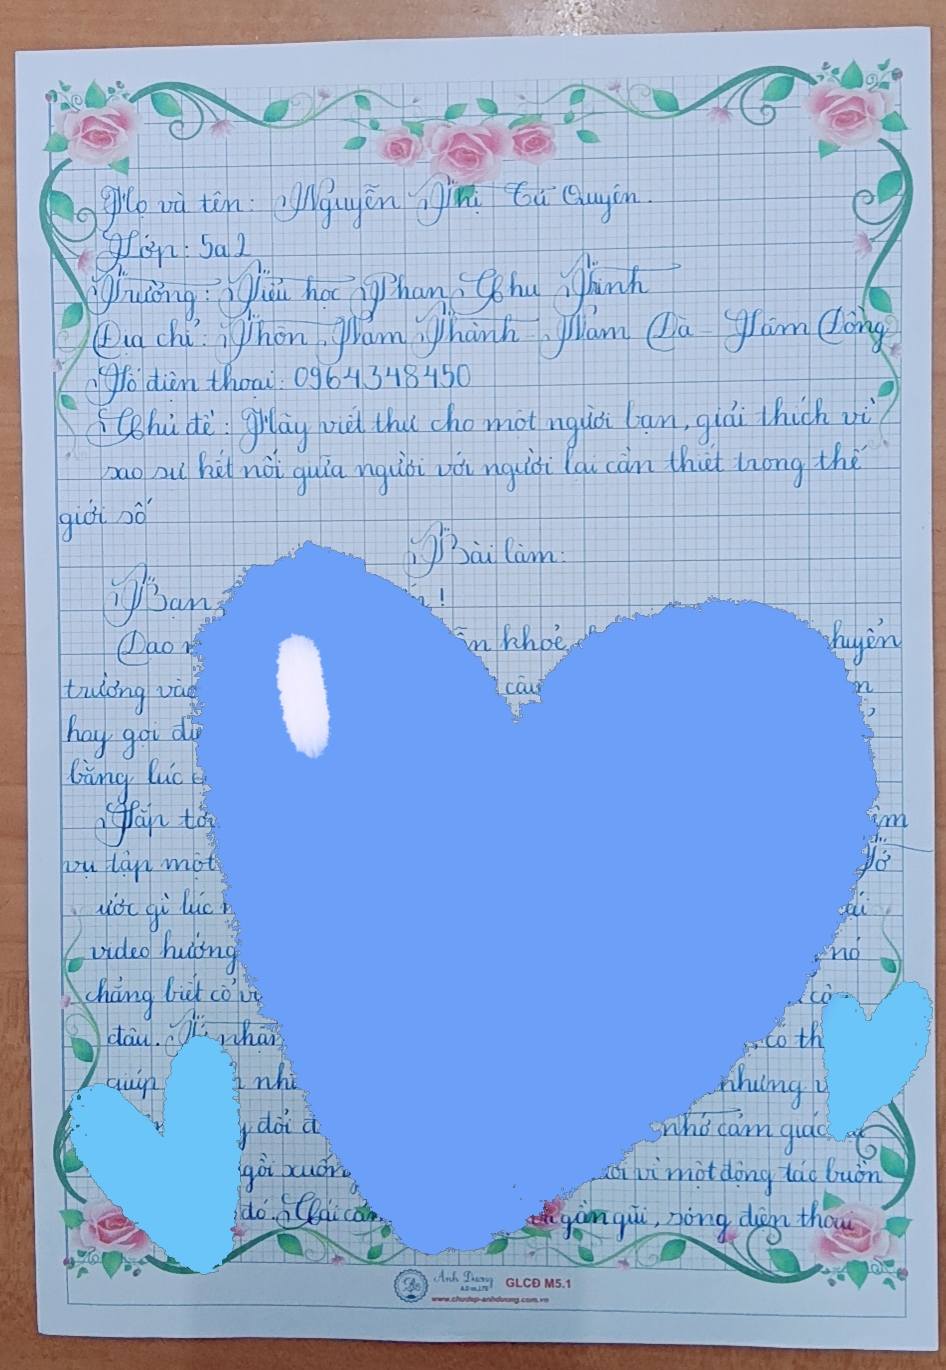 Họ và tên: Nguyễn Thị Tú Quyên.
Lớp: 5a2
Trường: Tiểu học Phan Chu Trinh
Địa chỉ: Thôn Nam Thành - Nâm Đà - Lâm Đồng
Số điện thoại: 0964348450
Chủ đề: Hãy viết thư cho một người bạn, giải thích vì
sao sự kết nối giữa người với người lại cần thiết trong thế
giới số
Bài làm:
Bạn !
Dạo khoẻ huyển
trường vào câu
hay gọi
bằng lúc
Sắp tới
vụ tập một Tớ
ước gì lúc
video hướng nó
chẳng biết cổ
đâu. nhận có th
giúp nhi nhưng
đổi nhớ cảm giác
gồi xuống vì một động tác buồn
đó. Cái gần gũi, sóng điện thoại
Anh Dương GLCĐ M5.1
www.chudep-anhduong.com.vn